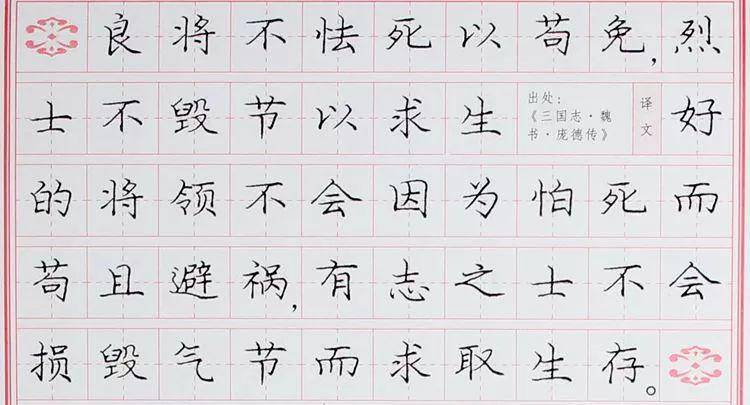 良将不怯死以苟免,烈
士不毁节以求生 出处:《三国志·魏书·庞德传》 译文 好
的将领不会因为怕死而
苟且避祸,有志之士不会
损毁气节而求取生存。